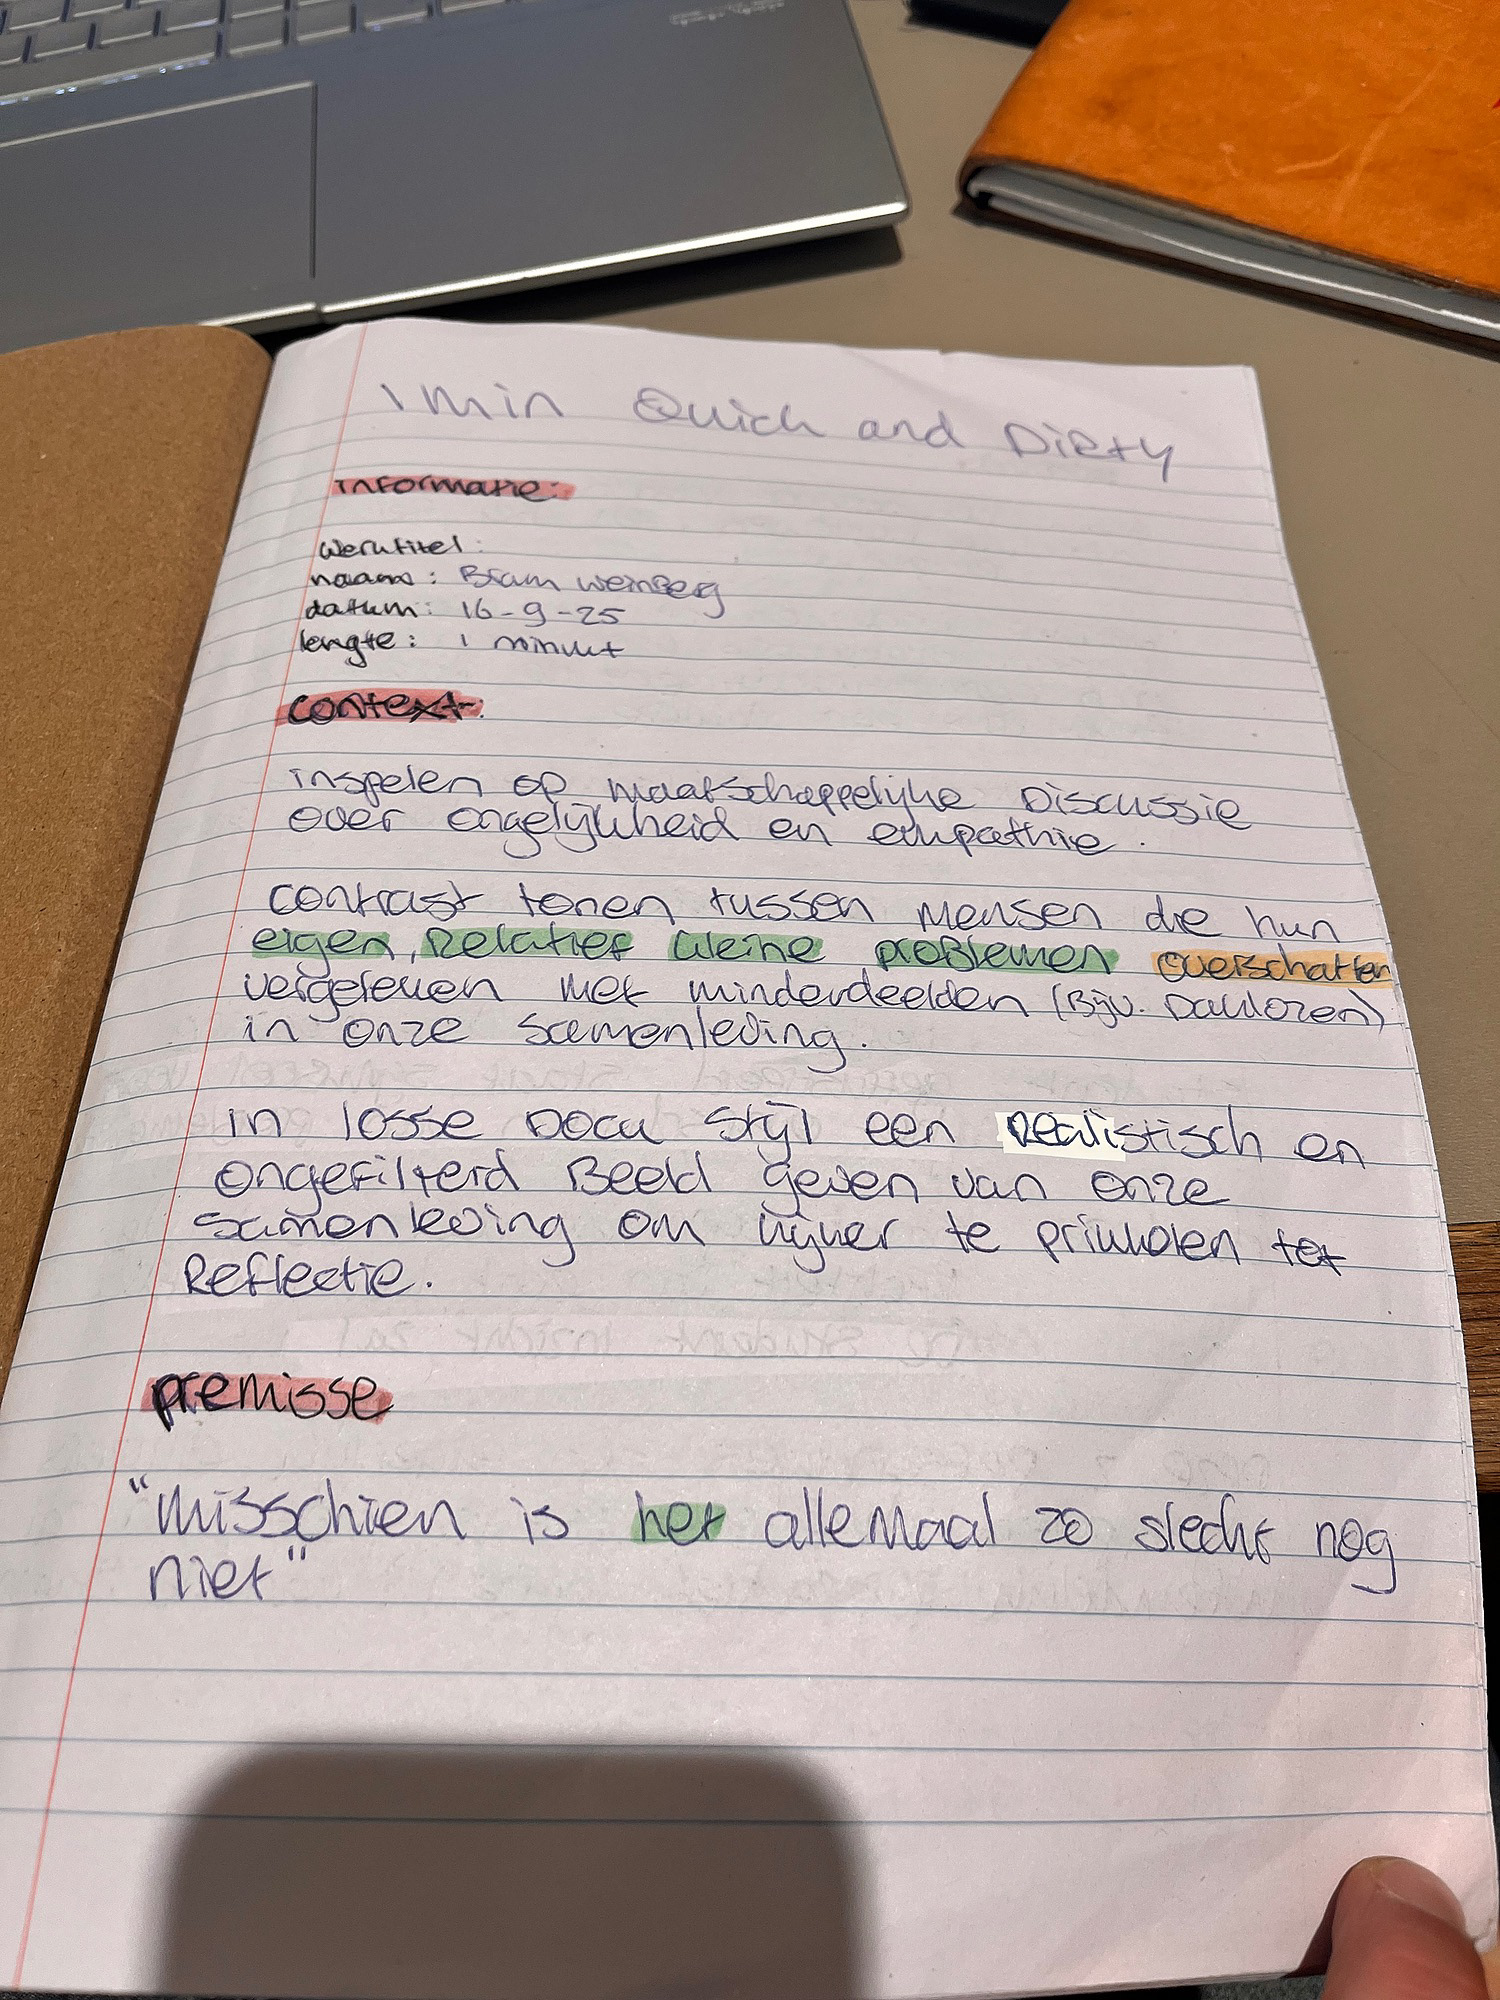 1 min Quick and Dirty
informatie:
werktitel:
naam: Bram Weinberg
datum: 16-9-25
lengte: 1 minuut
context:
inspelen op maatschappelijke Discussie
over ongelijkheid en empathie.
contrast tonen tussen mensen die hun
eigen, Relatief kleine problemen overschatten
vergeleken met minderdeelden (Bijv. Daklozen)
in onze samenleving.
in losse Docu stijl een Realistisch en
ongefilterd Beeld geven van onze
samenleving om kijker te prikkelen tot
Reflectie.
premisse
"misschien is het allemaal zo slecht nog
niet"